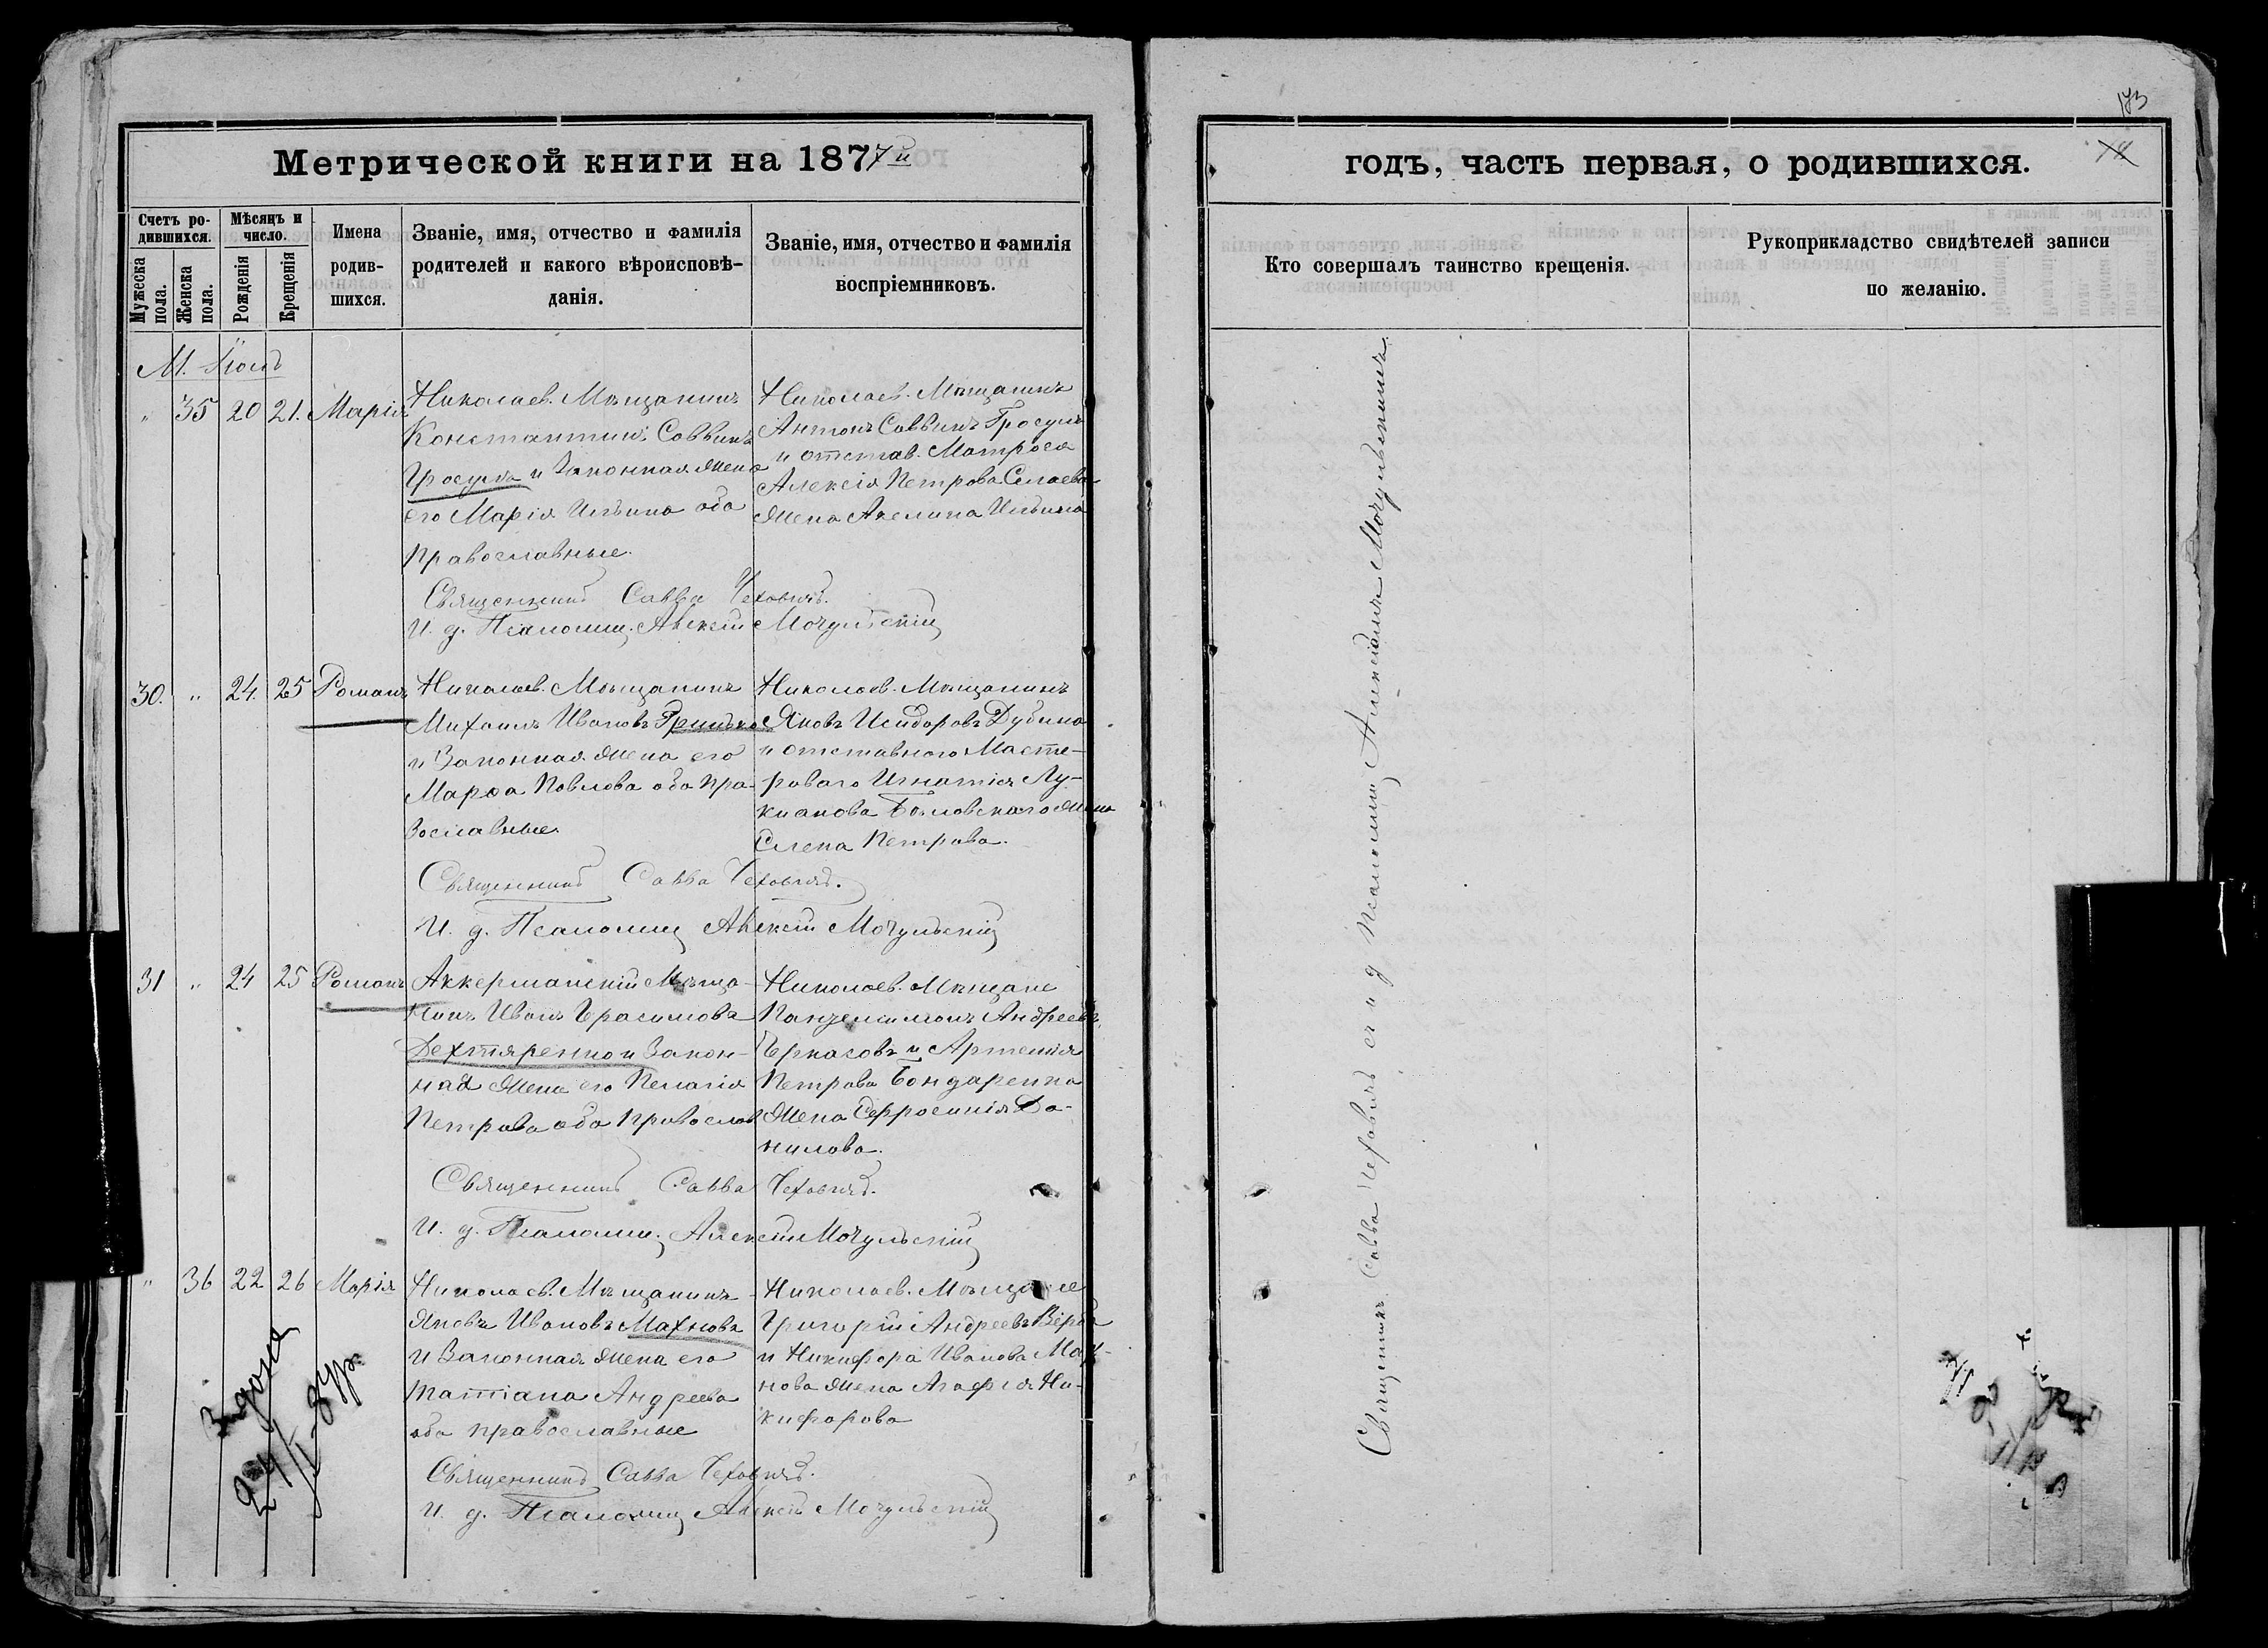 Метрической книги на 1877й
Счетъ ро-
дившихся.
Мужеска
пола.
Женска
пола.
Мѣсяцъ и
число.
Рожденія
Крещенія
Имена
родив-
шихся.
Званіе, имя, отчество и фамилія
родителей и какого вѣроисповѣ-
данія.
Званіе, имя, отчество и фамилія
воспріемниковъ.
М.
„ 35 20 21. Марія
Николаев. Мѣщанинъ
Константинъ Саввинъ
Гросулъ и Законная жена
его Марія Ильина оба
православные.
Николаев. Мѣщанинъ
Антонъ Саввинъ Гросулъ
и отстав. Матроса
Алексія Петрова
жена Акелина Ильина
Священникъ Савва Чеховичъ.
И. д. Псаломщ. Алексій Мочульскій
30. „ 24. 25 Романъ
Николаев. Мѣщанинъ
Михаилъ Ивановъ Гринько
и Законная жена его
Марѳа Павлова оба пра-
вославные.
Николаев. Мѣщанинъ
Яковъ Исидоровъ Дубина
и отставного Масте-
роваго Игнатія Лу-
кианова жена
Елена Петрова.
Священникъ Савва Чеховичъ.
И. д. Псаломщ Алексій Мочульскій
31 „ 24 25 Романъ
Аккерманскій Мѣща-
нинъ Иванъ Герасимовъ
Дехтяренко и Закон-
ная жена его Пелагія
Петрова оба Православ
Николаев. Мѣщане
Пантелимонъ Андреевъ
Черкасовъ и Артемія
Петрова Бондаренка
жена Ефросинія Да-
нилова.
Священникъ Савва Чеховичъ.
И. д. Псаломщ. Алексій Мочульскій
„ 36 22 26 Марія
Николаев. Мѣщанинъ
Яковъ Ивановъ Махновъ
и Законная жена его
Татіана Андреева
оба православные
Николаев. Мѣщане
Григорій Андреевъ Верба
и Никифора Иванова Мах-
нова жена Агафія Ни-
кифорова
Священникъ Савва Чеховичъ.
И. д. Псаломщ Алексій Мочульскій
173
годъ, часть первая, о родившихся.
Кто совершалъ таинство крещенія.
Рукоприкладство свидѣтелей записи
по желанію.
Священникъ Савва Чеховичъ съ и д Псаломщ Алексіемъ Мочульскимъ.